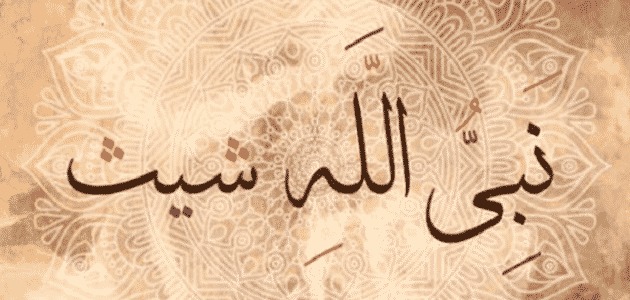 نَبِىُّ اللَّهِ شيث